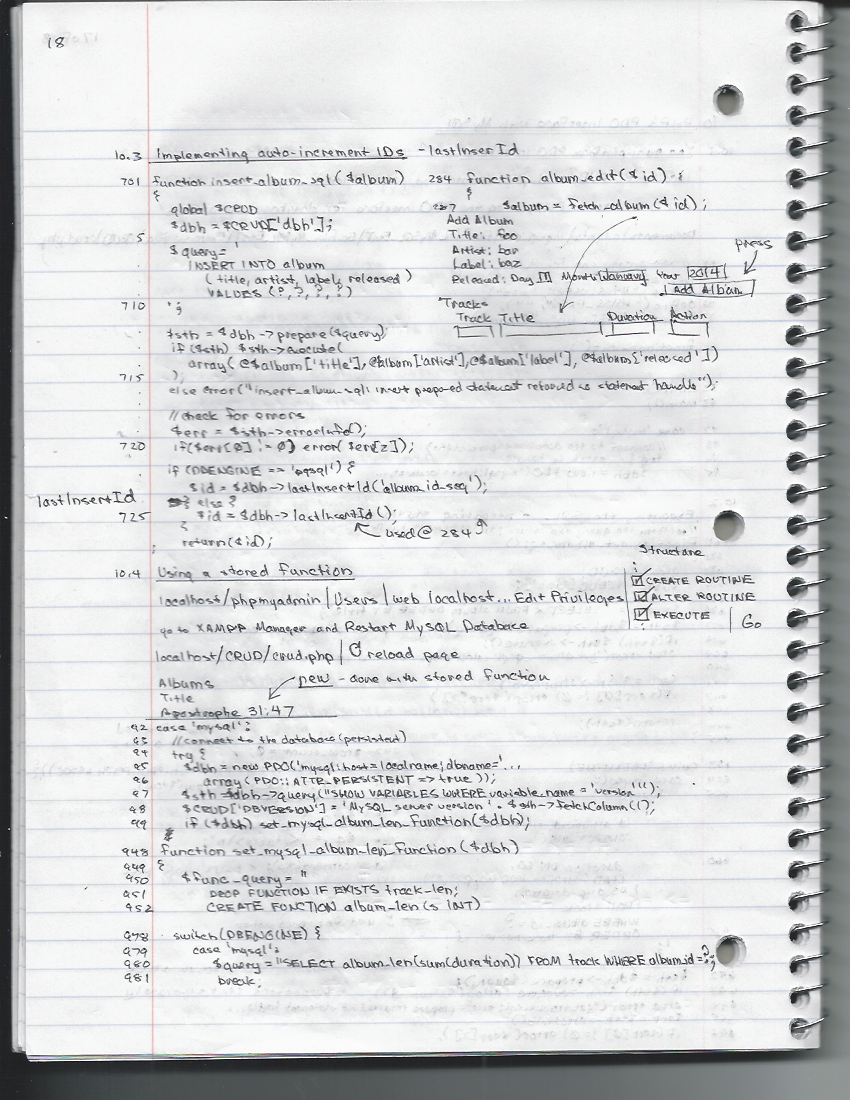 18
10.3 Implementing auto-increment IDs - lastInserId
701 function insert_album_sql($album)
{
global $CRUD
$dbh = $CRUD['dbh'];
5 $query=
INSERT INTO album
(title, artist, label, released)
VALUES (?,?,?,?)
710 ";
$sth = $dbh->prepare($query)
if($sth) $sth->execute(
array(@$album['title'], @album['artist'], @$album['label'], @$album['released'])
715 );
else error("insert_album_sql: insert prepared statement returned no statement handle");
//check for errors
$err = $sth->errorInfo();
720 if($err[0] != 0) error($err[2]);
if (DBENGINE == 'pgsql') {
$id = $dbh->lastInsertId('album_id_seq');
} else {
lastInsertId
725 $id = $dbh->lastInsertId();
}
used @ 284
return($id);
284 function album_edit($id) {
{
287 $album = fetch_album($id);
Add Album
Title: foo
Artist: bar
Label: baz
Released: Day 1 Month January Year 2014
press
Add Album
Tracks
Track Title Duration Action
10.4 Using a stored function
localhost/phpmyadmin | Users | web localhost... Edit Privileges
Structure
CREATE ROUTINE
ALTER ROUTINE
EXECUTE | Go
go to XAMPP Manager and Restart MySQL Database
localhost/CRUD/crud.php | reload page
Albums new - done with stored function
Title
Apostrophe 31:47
92 case 'mysql':
93 //connect to the database(persisted)
94 try {
95 $dbh = new PDO('mysql:host=localname;dbname='...
96 array(PDO::ATTR_PERSISTENT => true ));
97 $sth = $dbh->query("SHOW VARIABLES WHERE variable_name = 'version'");
98 $CRUD['DBVERSION'] = 'MySQL server version' . $sth->fetchColumn(1);
99 if ($dbh) set_mysql_album_len_function($dbh);
948 function set_mysql_album_len_function($dbh)
949 {
950 $func_query = "
951 DROP FUNCTION IF EXISTS track_len;
952 CREATE FUNCTION album_len(s INT)
978 switch(DBENGINE) {
979 case 'mysql':
980 $query = "SELECT album_len(sum(duration)) FROM track WHERE album_id = ?";
981 break;